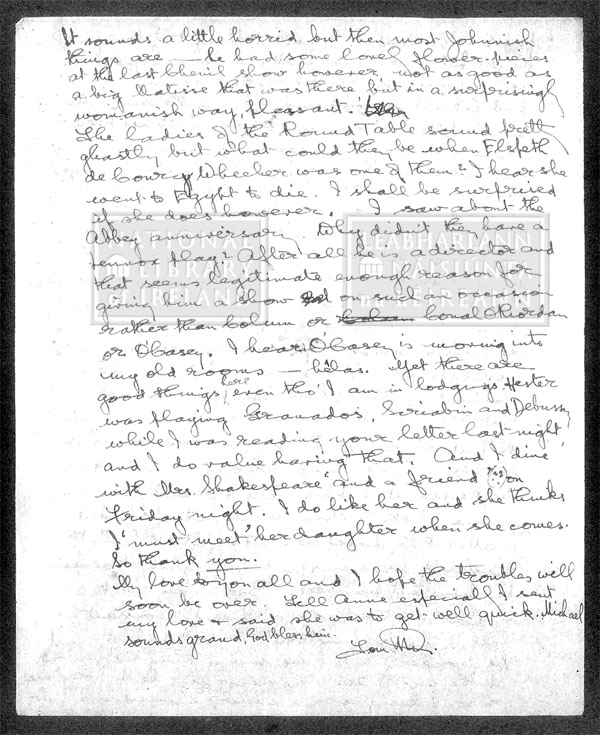 It sounds a little horrid but then most Johnnish
things are — he had some lovely flower-pieces
at the last Chenil show however, not as good as
a big Matisse that was there but in a surprisingly
womanish way, pleasant.
The Ladies of the Round Table sound pretty
ghastly but what could they be when Elspeth
de Courcy Wheeler was one of them? I hear she
went to Egypt to die. I shall be surprised
if she does however. I saw about the
Abbey anniversary. Why didn't they have a
Lennox play? After all he is a director and
that seems legitimate enough reason for
giving him a show on such an occasion
rather than Colum or Conal O'Riordan
or O'Casey. I hear O'Casey is moving into
my old rooms — hélas. Yet there are
good things here, even tho' I am in lodgings. Hester
was playing Granados, Scriabin and Debussy
while I was reading your letter last night,
and I do value having that. And I dine
with Mrs. Shakespeare and a friend on
Friday night. I do like her and she thinks
I 'must meet' her daughter when she comes.
So thank you.
My love to you all and I hope the troubles will
soon be over. Tell Anne especially I sent
my love & said she was to get well quick. Michael
sounds grand, God bless him.
Tom
NATIONAL LIBRARY OF IRELAND
LEABHARLANN NÁISIÚNTA NA hÉIREANN